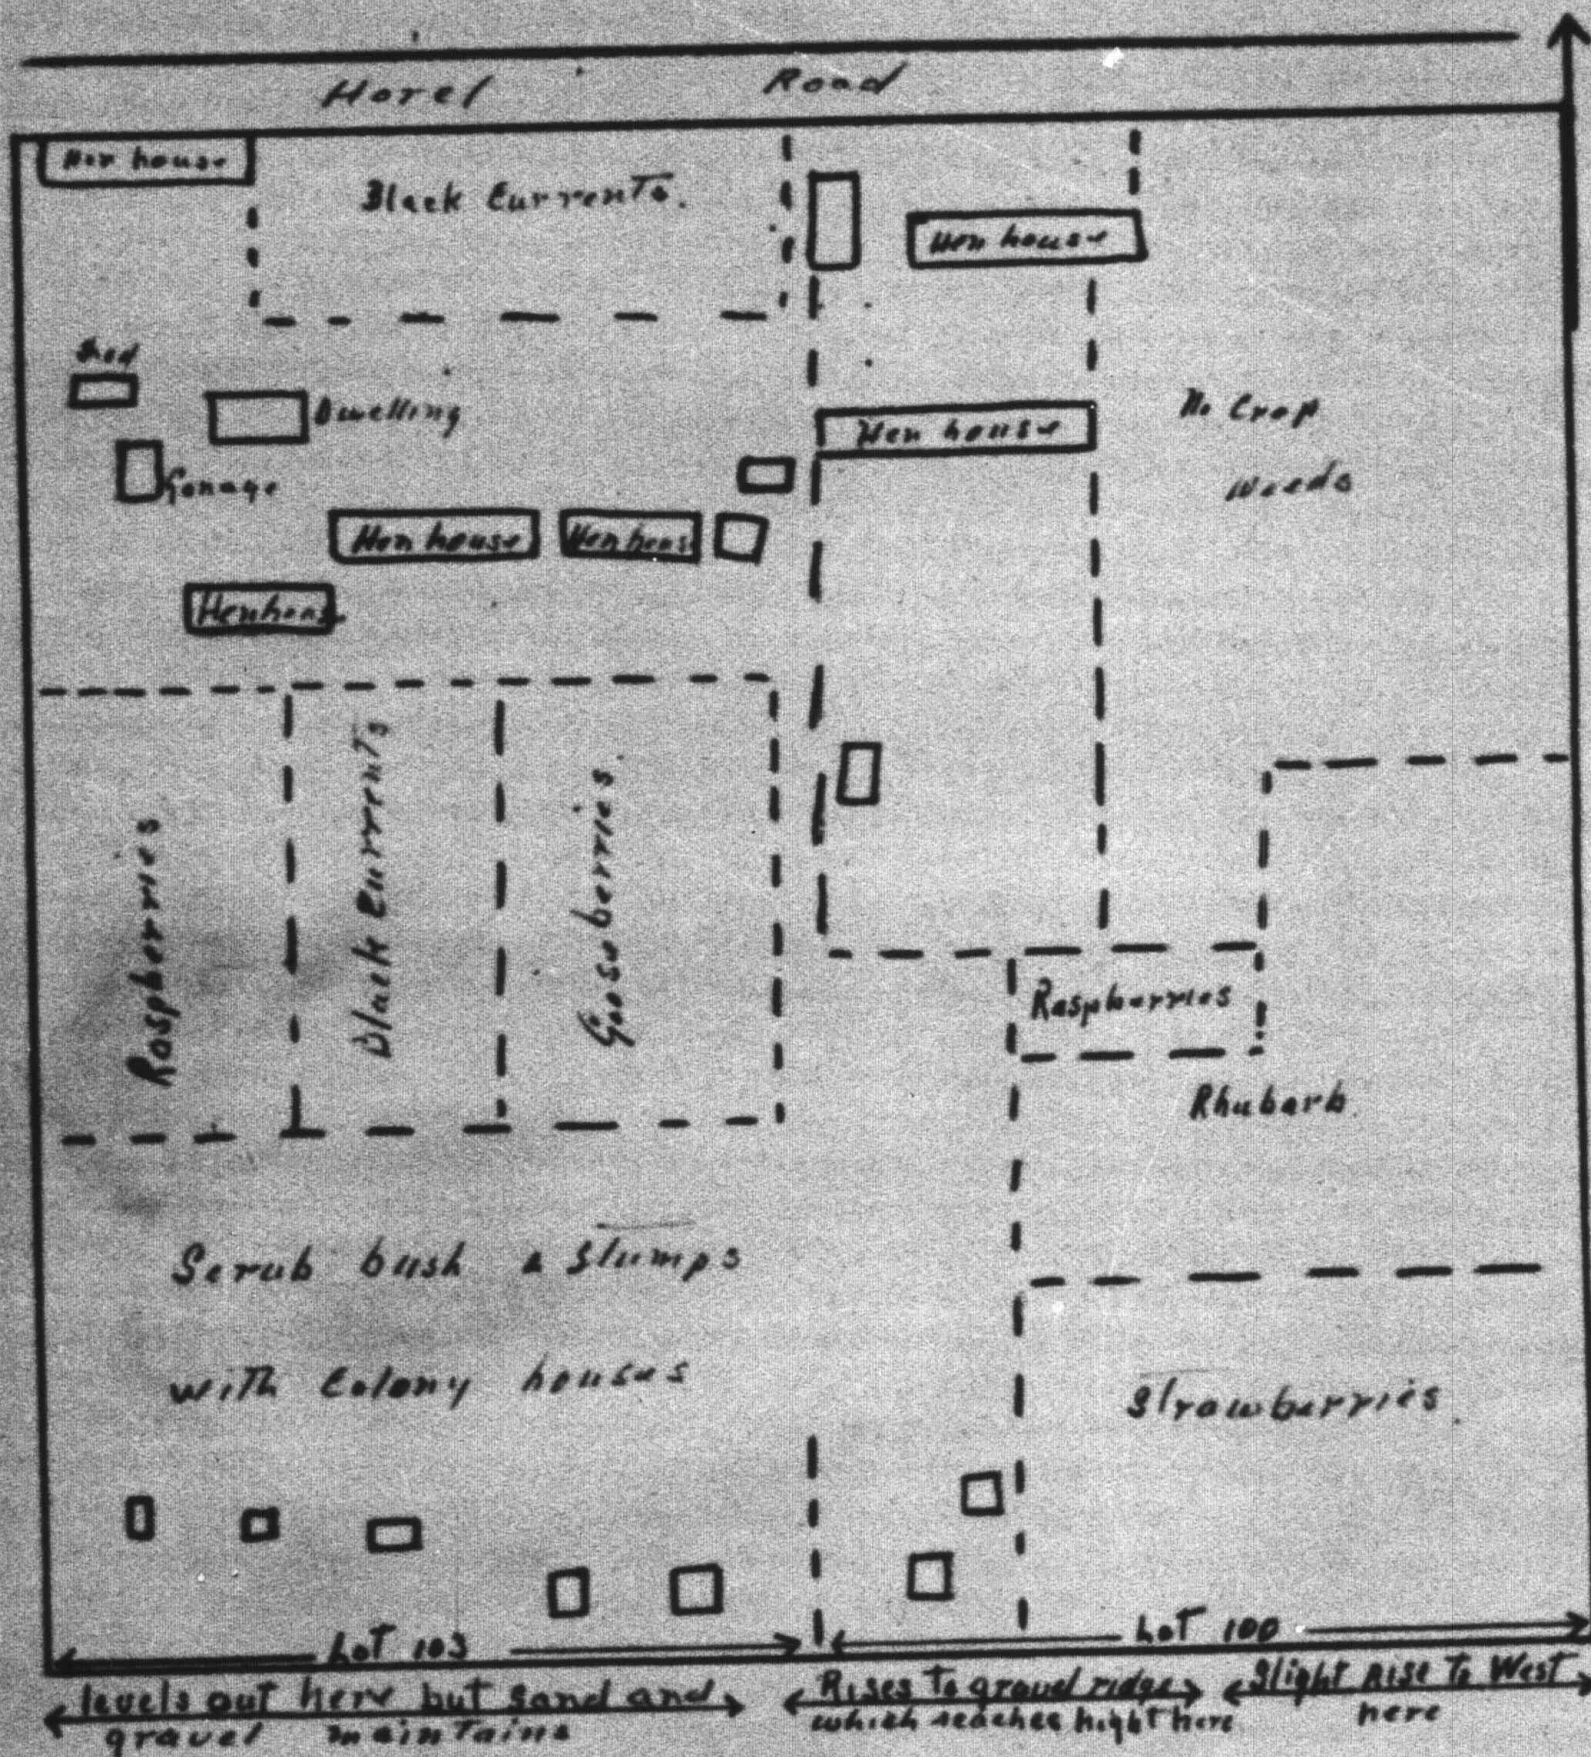 Horel Road
Hen house
Black Currents.
Hen house
Shed
Dwelling
Hen house
No Crop
Weeds
Garage
Hen house
Hen hous
Henhous
Raspberries
Black Currents
Gooseberries.
Raspberries
Rhubarb.
Scrub bush & Stumps
with Colony houses
Strawberries.
Lot 103
Lot 100
levels out here but sand and
gravel maintains
Rises to gravel ridge
which reaches hight here
Slight rise to West
here